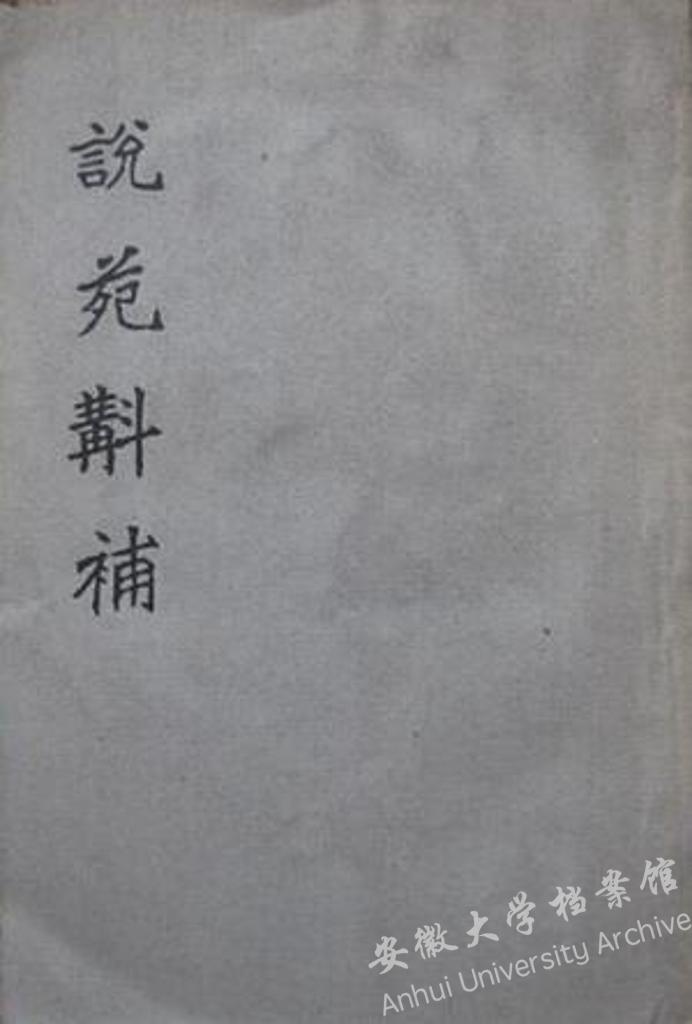 說苑斠補
安徽大学档案馆
Anhui University Archive